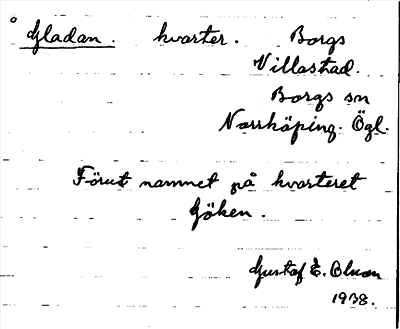 Gladan. kvarter. Borgs
Villastad.
Borgs sn
Norrköping. Ögl.
Förut namnet på kvarteret
Göken.
Gustaf E. Blman
1938.